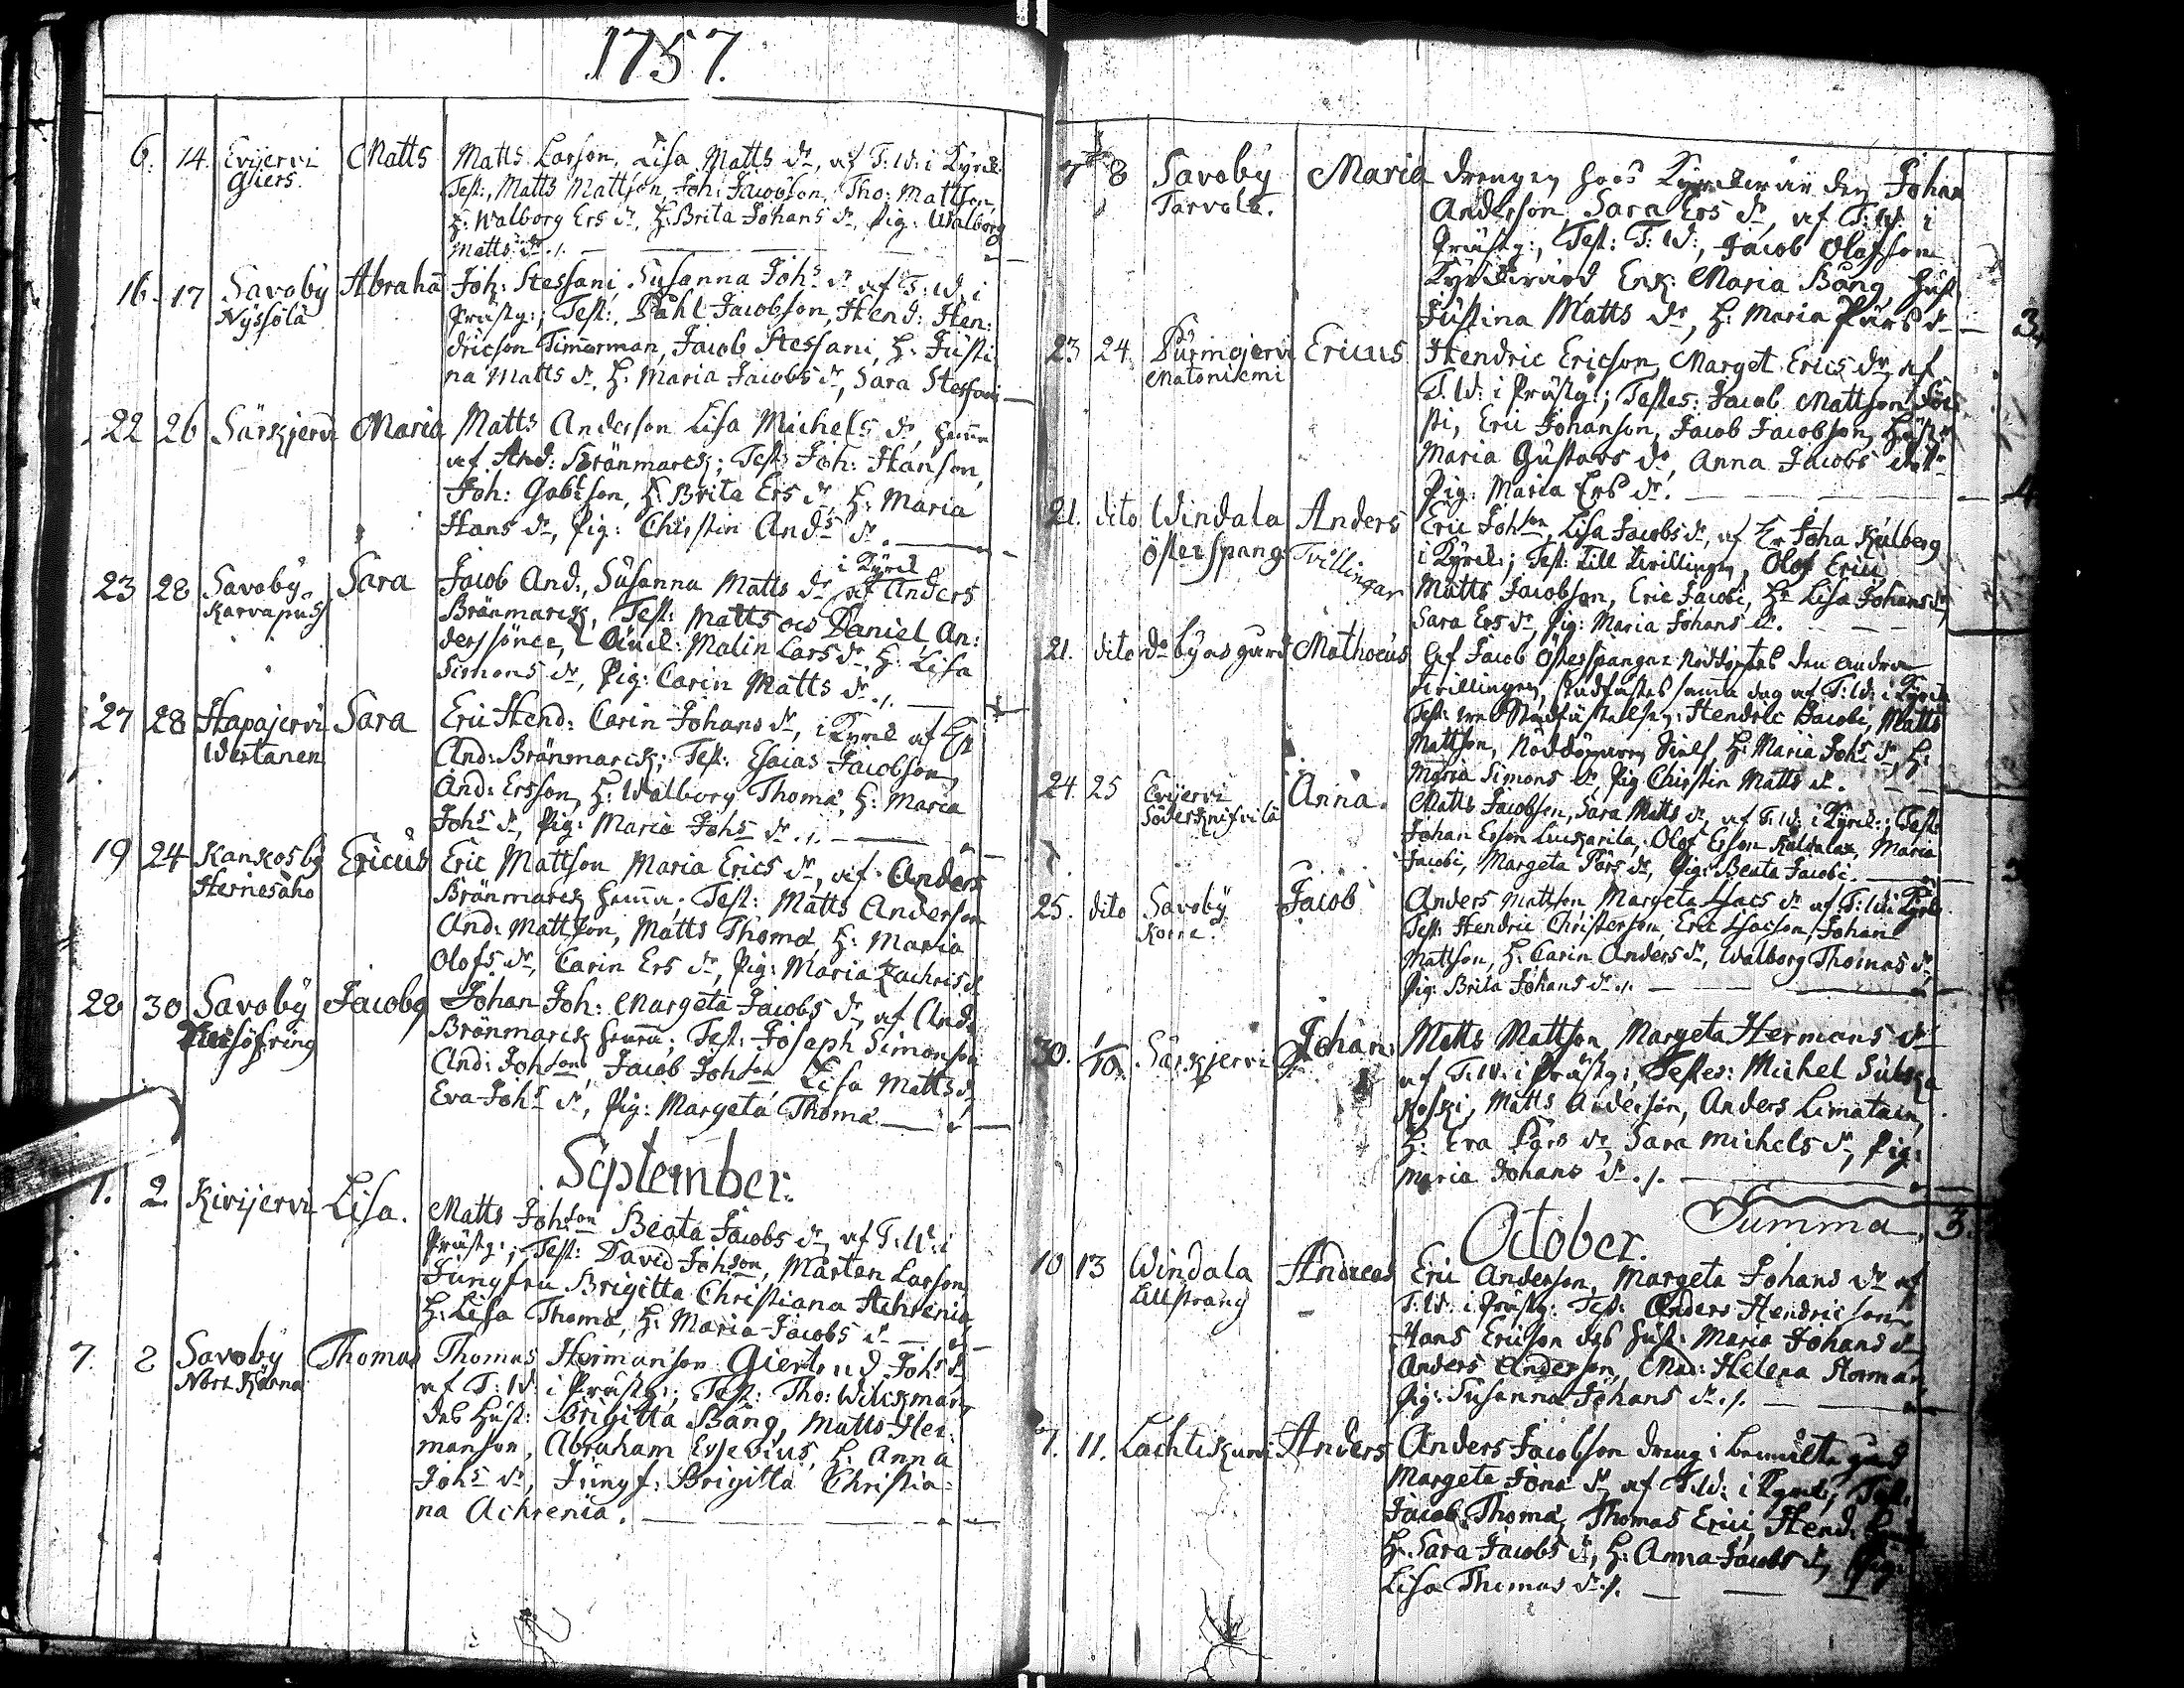 1757.
6. 14. Evijervi Matts Matts Larson, Lisa Matts dr, af T: W: i Kyrck:
Gliers. Test:, Matts Mattson, Joh: Jacobson, Tho: Mattson,
H: Walborg Ers dr, H: Brita Johans dr, Pig: Walborg
Matts dr ./.
16. 17 Savoby Abraha Joh: Steffani, Susanna Johs dr af T: W: i
Nyssölä Prästg:; Test:, Påhl Jacobson, Hend: Hen:
dricson Timmerman, Jacob Steffani, H: Justi
na Matts dr. H: Maria Jacobs dr, Sara Steffani
22 26 Särkjervi Maria Matts Anderson Lisa Michels dr, hemma
af And: Brönmarck; Test: Joh: Hanson,
Joh: Gabrson, H: Brita Ers dr, H: Maria
Hans dr, Pig: Christin Ands dr.
i Kyrck
23 28 Savoby Sara Jacob And:, Susanna Matts dr af Anders
Karvapus Brönmarck, Test: Matts och Daniel An:
derssöner, Malin Lars dr, H: Lisa
Simons dr, Pig: Carin Matts dr ./.
27 28 Hapajervi Sara Eric Hend: Carin Johans dr, i Kyrck af
Wertanen And: Brönmarck; Test: Esaias Jacobson,
And: Ersson, H: Walborg Thomæ, H: Maria
Johs dr, Pig: Maria Johs dr ./.
19 24 Kankosby Ericus Eric Mattson Maria Erics dr, af Anders
Hernesaho Brönmarck hemma; Test: Matts Anderson
And: Mattson, Matts Thomæ, H: Maria
Olofs dr, Carin Ers dr, Pig: Maria Zachris dr
28 30 Savoby Jacobg Johan Joh: Margeta Jacobs dr, af And:
Brönmarck hemma; Test: Joseph Simonson
And: Johson, Jacob Johson Lisa Matts dr
Eva Johs dr, Pig: Margeta Thomæ
September.
1. 2 Kivijervi Lisa. Matts Johson Beata Jacobs dr, af T: W: i
Prästg:; Test: David Johson, Mårten Larson
Jungfru Brigitta Christiana Achrenia
H: Lisa Thomæ, H: Maria Jacobs dr
7. 8 Savoby Thomas Thomas Hermanson Giertrud Johs dr
Norr Karna af T: W: i Prästg:; Test: Tho: Wilckman
des Hust: Brigitta Bång, Matts Her:
manson, Abraham H: Anna
Johs dr, Jungf: Brigitta Christia:
na Achrenia.
7 8 Savoby Maria Drengen hoos Kyrckiovärden Johan
Tarvola. Anderson, Sara Ers dr, af T: W: i
Prästg:, Test: T: W:, Jacob Olofson
Kyrckiovärd Enk: Maria Bång Hust
Justina Matts dr, H: Maria Pärs dr 3.
23 24. Purmojervi Ericus Hendric Ericson, Marget Erics dr, af
Matoniemi T. W: i Prästg:; Testes: Jacob Mattson
Eric Johanson, Jacob Jacobson, Hust
Maria Gustavs dr, Anna Jacobs
Pig: Maria Ers dr. 4.
21. dito Windala Anders Eric Johson, Lisa Jacobs dr, af Joha Kulberg
Österspang Tvillingar i Kyrck; Test: till tvillingen, Olof Erici,
Matts Jacobson, Eric Jacobi, Hr Lisa Johans dr
Sara Ers dr, Pig: Maria Johans dr.
21. dito do byas gard Mathæus Af Jacob Österspangar nöddöptes den andra
tvillingen, stadfästes samma dag af T: W: i Kyrck
Test: Hendric Jacobi, Matts
Mattson, H: Maria Johs dr, H:
Maria Simons dr, Pig Christin Matts dr.
24. 25 Evijervi Anna. Matts Jacobson, Sara Matts dr, af T: W: i Kyrck; Test:
Söderknifvila Johan Erson Luckarila, Olof Erson Kaldalax, Maria
Jacobi, Margeta Pärs dr, Pig: Beata Jacobi.
25. dito Savoby Jacob Anders Mattson Margeta Isacs dr af T: W: i Kyrck
Test: Hendric Christerson, Eric Isacson, Johan
Mattson, H: Carin Anders dr, Walborg Thomas dr
Pig: Brita Johans dr ./.
30. 1/10. Särkjervi Johan. Matts Mattson Margeta Hermans dr
af T: W: i Prästg:, Testes: Michel
Matts Anderson, Anders Limatain,
H: Eva Pärs dr, Sara Michels dr, Pig:
Maria Johans dr ./.
Summa. 3.
October.
10 13 Windala Andreas Eric Anderson, Margeta Johans dr af
T: W: i Prästg: Test: Anders Hendricson
Hans Ericson des hust: Maria Johans dr
Anders Anderson, Mad: Helena
Pig: Susanna Johans dr ./.
7. 11. Lachtikumi Anders Anders Jacobson dreng i bemälte gård
Margeta Jona dr af T: W: i Kyrck, Test:
Jacob Thomæ, Thomas Erici, Hend:
H: Sara Jacobs dr, H: Anna Jacobs dr, Pig:
Lisa Thomas dr ./.